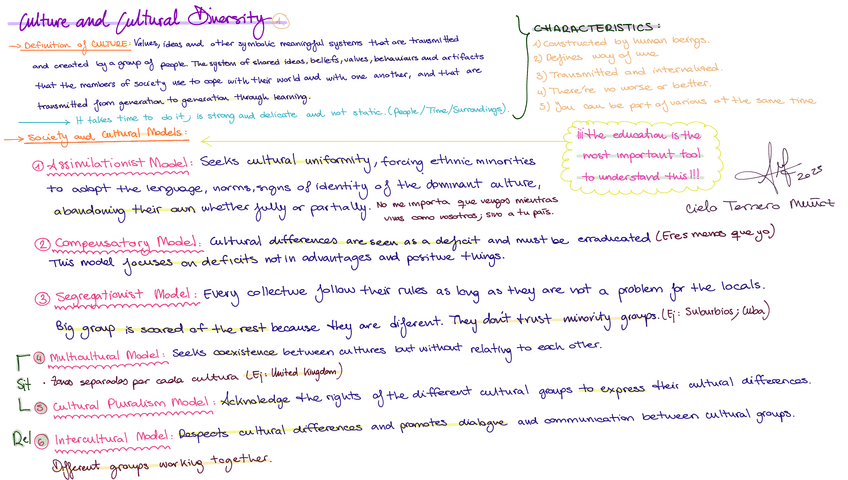 Culture and Cultural Diversity 1
→ Definition of CULTURE: Values, ideas and other symbolic meaningful systems that are transmitted
and created by a group of people. The system of shared ideas, beliefs, values, behaviours and artifacts
that the members of society use to cope with their world and with one another, and that are
transmitted from generation to generation through learning.
→ It takes time to do it, is strong and delicate and not static. (People/Time/Surroundings).
CHARACTERISTICS:
1) Constructed by human beings.
2) Defines way of live.
3) Transmitted and internalised.
4) There're no worse or better.
5) You can be part of various at the same time
→ Society and Cultural Models:
¡¡¡The education is the
most important tool
to understand this!!!
2025
Cielo Ternero Muñoz
① Assimilationist Model: Seeks cultural uniformity, forcing ethnic minorities
to adopt the lenguage, norms, signs of identity of the dominant culture,
abandoning their own whether fully or partially. No me importa que vengas mientras
vivas como vosotros; sino a tu país.
② Compensatory Model: Cultural differences are seen as a deficit and must be erradicated (Eres menos que yo)
This model focuses on deficits not in advantages and positive things.
③ Segregationist Model: Every collective follow their rules as long as they are not a problem for the locals.
Big group is scared of the rest because they are diferent. They don't trust minority groups. (Ej: Suburbios; Cuba)
④ Multicultural Model: Seeks coexistence between cultures but without relating to each other.
Sit · Zonas separadas por cada cultura (Ej: United Kingdom)
⑤ Cultural Pluralism Model: Acknoledge the rights of the different cultural groups to express their cultural differences.
Rel ⑥ Intercultural Model: Respects cultural differences and promotes dialogue and communication between cultural groups.
Different groups working together.